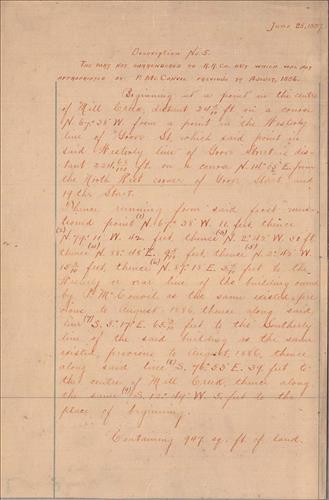 June 25, 1887
Description No. 5.
The way not surrendered to R.R. Co. but which was not
appropriated by P. McCanvel previous to August, 1886.
Beginning at a point in the centre
of Mill Creek, distant 34 ft on a course
N. 67° 38' W. from a point in the Westerly
line of "Goose St, which said point in
said Westerly line of Goose Street is dis-
tant 224 ft on a course N. 14° E. from
the North West corner of Goose Street and
19th Street.
Thence running from said first men-
tioned point (1) N. 67° 38' W. 10 feet thence
(2) N. 79° 10' W. 42 feet, thence (3) N. 2° 42' W. 30 ft
thence (4) N. 88° 45' E. feet, thence (5) N. 2° 45' W.
feet, thence (6) N. 87° 15' E. feet to the
Westerly or rear line of the building owned
by P. McConvel as the same existed pre-
vious to August, 1886, thence along said
line (7) S. 5° 17' E. feet to the Southerly
line of the said building as the same
existed previous to August, 1886, thence
along said line (8) S. 76° 55' E. 39 feet to
the centre of Mill Creek, thence along
the same (9) S. 12° 49' W. 5 feet to the
place of beginning.
Containing 947 sq. ft of land.